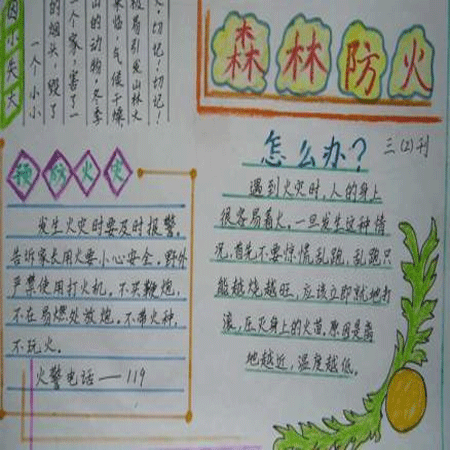 森林防火
三(2)刊
因小失大
一个小小
的烟头,毁了
一个家,害了一
山的动物,冬季
来临,气候干燥,
极易引发山林火
切记!切记!
预防火灾
发生火灾时要及时报警,
告诉家长用火要小心安全。野外
严禁使用打火机。不买鞭炮,
不在易燃处放炮。不带火种,
不玩火。
火警电话——119
怎么办?
遇到火灾时,人的身上
很容易着火。一旦发生这种情
况,首先不要惊慌乱跑,乱跑只
能越烧越旺,应该立即就地打
滚,压灭身上的火苗,原因是离
地越近,温度越低。